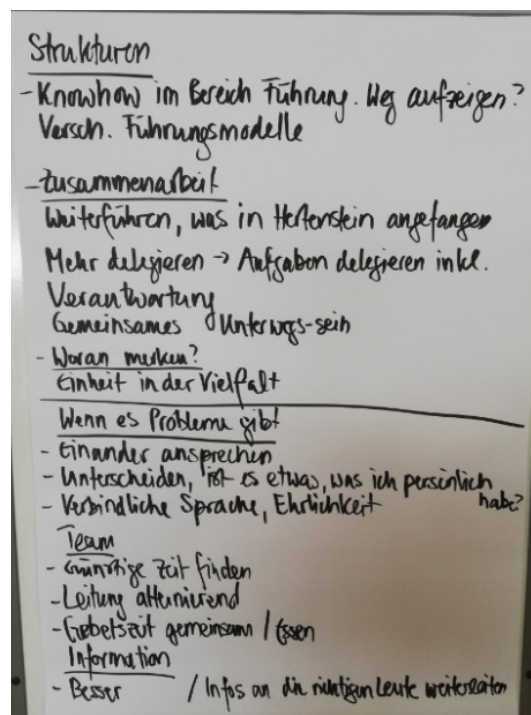 Strukturen
- Knowhow im Bereich Führung. Weg aufzeigen?
Versch. Führungsmodelle
- Zusammenarbeit
Weiterführen, was in Hertenstein angefangen
Mehr delegieren → Aufgaben delegieren inkl.
Verantwortung
Gemeinsames Unterwegs-sein
- Woran merken?
Einheit in der Vielfalt
Wenn es Probleme gibt
- Einander ansprechen
- Unterscheiden, ist es etwas, was ich persönlich
habe?
- Verbindliche Sprache, Ehrlichkeit
Team
- Günstige Zeit finden
- Leitung alternierend
- Gebetszeit gemeinsam / Essen
Information
- Besser / Infos an die richtigen Leute weiterleiten